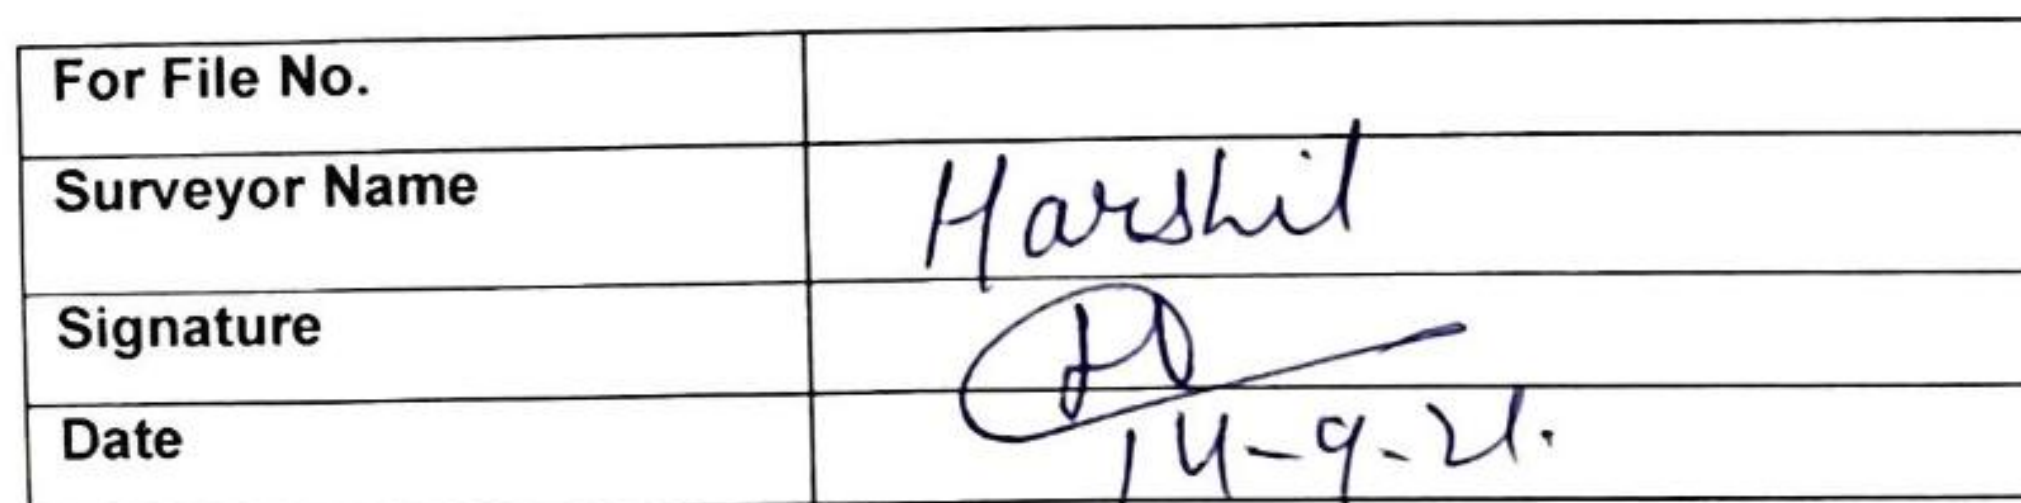 For File No.
Surveyor Name Harshil
Signature
Date 14-9-21.